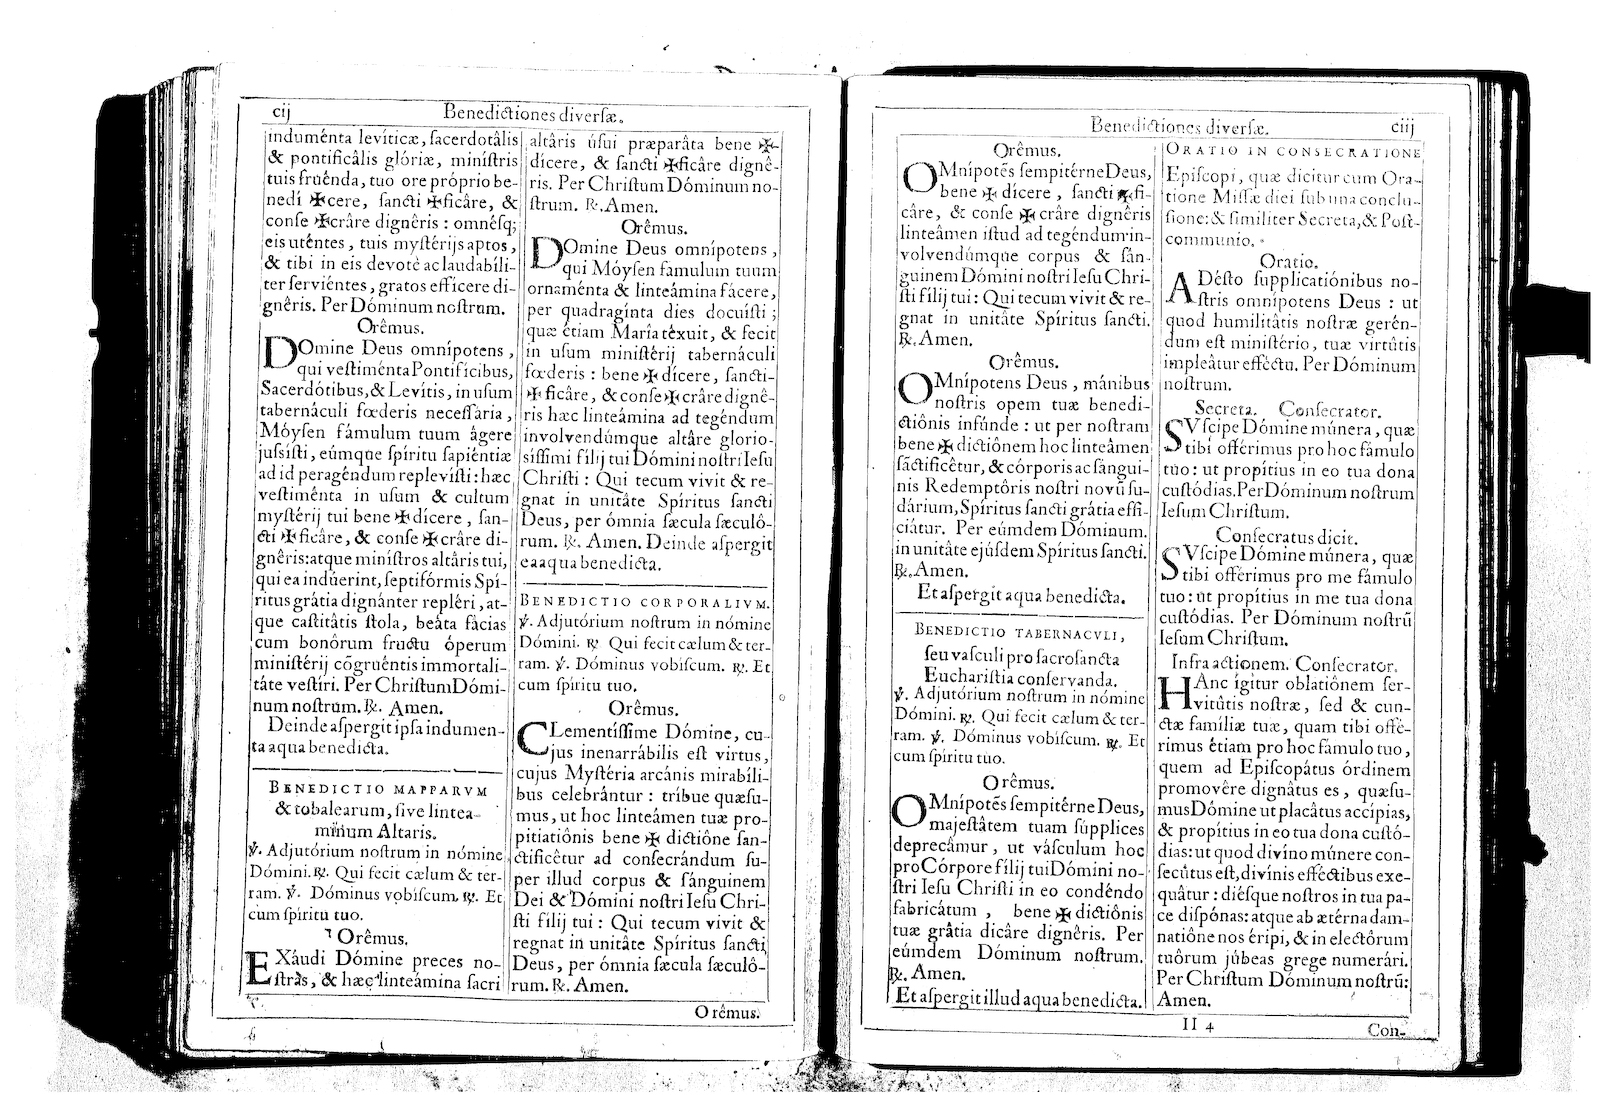 cij
Benedictiones diverſæ.
induménta levíticæ, ſacerdotâlis
& pontificâlis glóriæ, miníſtris
tuis fruénda, tuo ore próprio be-
nedí ✠ cere, ſancti ✠ ficâre, &
conſe ✠ crâre dignêris : omnéſq;
eis uténtes, tuis myſtérijs aptos,
& tibi in eis devotè ac laudabíli-
ter ſerviéntes, gratos efficere di-
gnêris. Per Dóminum noſtrum.
Orêmus.
DOmine Deus omnípotens,
qui veſtiménta Pontificibus,
Sacerdótibus, & Levítis, in uſum
tabernáculi fœderis neceſſaria,
Móyſen fámulum tuum âgere
juſsíſti, eúmque ſpíritu ſapiéntiæ
ad id peragéndum replevíſti: hæc
veſtiménta in uſum & cultum
myſtérij tui bene ✠ dícere, ſan-
cti ✠ ficâre, & conſe ✠ crâre di-
gnêris: atque miníſtros altâris tui,
qui ea indúerint, ſeptifórmis Spí-
ritus grátia dignánter repléri, at-
que caſtitâtis ſtola, beáta fácias
cum bonôrum fructu óperum
miniſtérij cōgruéntis immortali-
tâte veſtíri. Per Chriſtum Dómi-
num noſtrum. ℟. Amen.
Deinde aſpergit ipſa indumen-
ta aqua benedicta.
BENEDICTIO MAPPARVM
& tobalearum, ſive lintea-
minum Altaris.
℣. Adjutórium noſtrum in nómine
Dómini. ℟. Qui fecit cælum & ter-
ram. ℣. Dóminus vobiſcum. ℟. Et
cum ſpíritu tuo.
Orêmus.
EXáudi Dómine preces no-
ſtras, & hæc linteámina ſacri
altâris úſui præparâta bene ✠
dícere, & ſancti ✠ ficâre dignê-
ris. Per Chriſtum Dóminum no-
ſtrum. ℟. Amen.
Orêmus.
DOmine Deus omnípotens,
qui Móyſen famulum tuum
ornaménta & linteámina fácere,
per quadragínta dies docuíſti ;
quæ étiam María téxuit, & fecit
in uſum miniſtérij tabernáculi
fœderis : bene ✠ dícere, ſancti-
✠ ficâre, & conſe ✠ crâre dignê-
ris hæc linteámina ad tegéndum
involvendúmque altâre glorio-
síſſimi fílij tui Dómini noſtri Ieſu
Chriſti : Qui tecum vivit & re-
gnat in unitâte Spíritus ſancti
Deus, per ómnia ſæcula ſæculô-
rum. ℟. Amen. Deinde aſpergit
ea aqua benedicta.
BENEDICTIO CORPORALIVM.
℣. Adjutórium noſtrum in nómine
Dómini. ℟ Qui fecit cælum & ter-
ram. ℣. Dóminus vobiſcum. ℟. Et
cum ſpíritu tuo.
Orêmus.
CLementíſſime Dómine, cu-
jus inenarrábilis eſt virtus,
cujus Myſtéria arcánis mirabíli-
bus celebrántur : tríbue quæſu-
mus, ut hoc linteámen tuæ pro-
pitiatiônis bene ✠ dictiône ſan-
ctificêtur ad conſecrándum ſu-
per illud corpus & ſánguinem
Dei & Dómini noſtri Ieſu Chri-
ſti fílij tui : Qui tecum vivit &
regnat in unitâte Spíritus ſancti
Deus, per ómnia ſæcula ſæculô-
rum. ℟. Amen.
Orêmus.
Benedictiones diverſæ.
ciij
Orêmus.
OMnípotēs ſempitérne Deus,
bene ✠ dícere, ſancti ✠ fi-
câre, & conſe ✠ crâre dignêris
linteâmen iſtud ad tegéndum in-
volvendúmque corpus & ſán-
guinem Dómini noſtri Ieſu Chri-
ſti fílij tui : Qui tecum vivit & re-
gnat in unitâte Spíritus ſancti.
℟. Amen.
Orêmus.
OMnípotens Deus, mánibus
noſtris opem tuæ benedi-
ctiônis infúnde : ut per noſtram
bene ✠ dictiônem hoc linteâmen
ſāctificêtur, & córporis ac ſángui-
nis Redemptôris noſtri novū ſu-
dárium, Spíritus ſancti grátia effi-
ciátur. Per eúmdem Dóminum.
in unitâte ejúſdem Spíritus ſancti.
℟. Amen.
Et aſpergit aqua benedicta.
BENEDICTIO TABERNACVLI,
ſeu vaſculi pro ſacroſancta
Euchariſtia conſervanda.
℣. Adjutórium noſtrum in nómine
Dómini. ℟. Qui fecit cælum & ter-
ram. ℣. Dóminus vobiſcum. ℟. Et
cum ſpíritu tuo.
Orêmus.
OMnípotēs ſempitérne Deus,
majeſtâtem tuam ſúpplices
deprecâmur, ut váſculum hoc
pro Córpore fílij tui Dómini no-
ſtri Ieſu Chriſti in eo condéndo
fabricátum, bene ✠ dictiônis
tuæ grâtia dicâre dignêris. Per
eúmdem Dóminum noſtrum.
℟. Amen.
Et aſpergit illud aqua benedicta.
ORATIO IN CONSECRATIONE
Epiſcopi, quæ dicitur cum Ora-
tione Miſſæ diei ſub una conclu-
ſione: & ſimiliter Secreta, & Poſt-
communio.
Oratio.
ADéſto ſupplicatiónibus no-
ſtris omnípotens Deus : ut
quod humilitâtis noſtræ gerén-
dum eſt miniſtério, tuæ virtûtis
impleâtur efféctu. Per Dóminum
noſtrum.
Secreta. Conſecrator.
SVſcipe Dómine múnera, quæ
tibi offérimus pro hoc fámulo
tuo : ut propítius in eo tua dona
cuſtódias. Per Dóminum noſtrum
Ieſum Chriſtum.
Conſecratus dicit.
SVſcipe Dómine múnera, quæ
tibi offérimus pro me fámulo
tuo : ut propítius in me tua dona
cuſtódias. Per Dóminum noſtrū
Ieſum Chriſtum.
Infra actionem. Conſecrator.
HAnc ígitur oblatiônem ſer-
vitûtis noſtræ, ſed & cun-
ctæ famíliæ tuæ, quam tibi offé-
rimus étiam pro hoc fámulo tuo,
quem ad Epiſcopátus órdinem
promovêre dignâtus es, quæſu-
mus Dómine ut placâtus accípias,
& propítius in eo tua dona cuſtó-
dias: ut quod divíno múnere con-
ſecútus eſt, divínis efféctibus exe-
quâtur : diéſque noſtros in tua pa-
ce diſpónas: atque ab ætérna dam-
natiône nos éripi, & in electôrum
tuôrum júbeas grege numerári.
Per Chriſtum Dóminum noſtrū:
Amen.
II 4
Con-